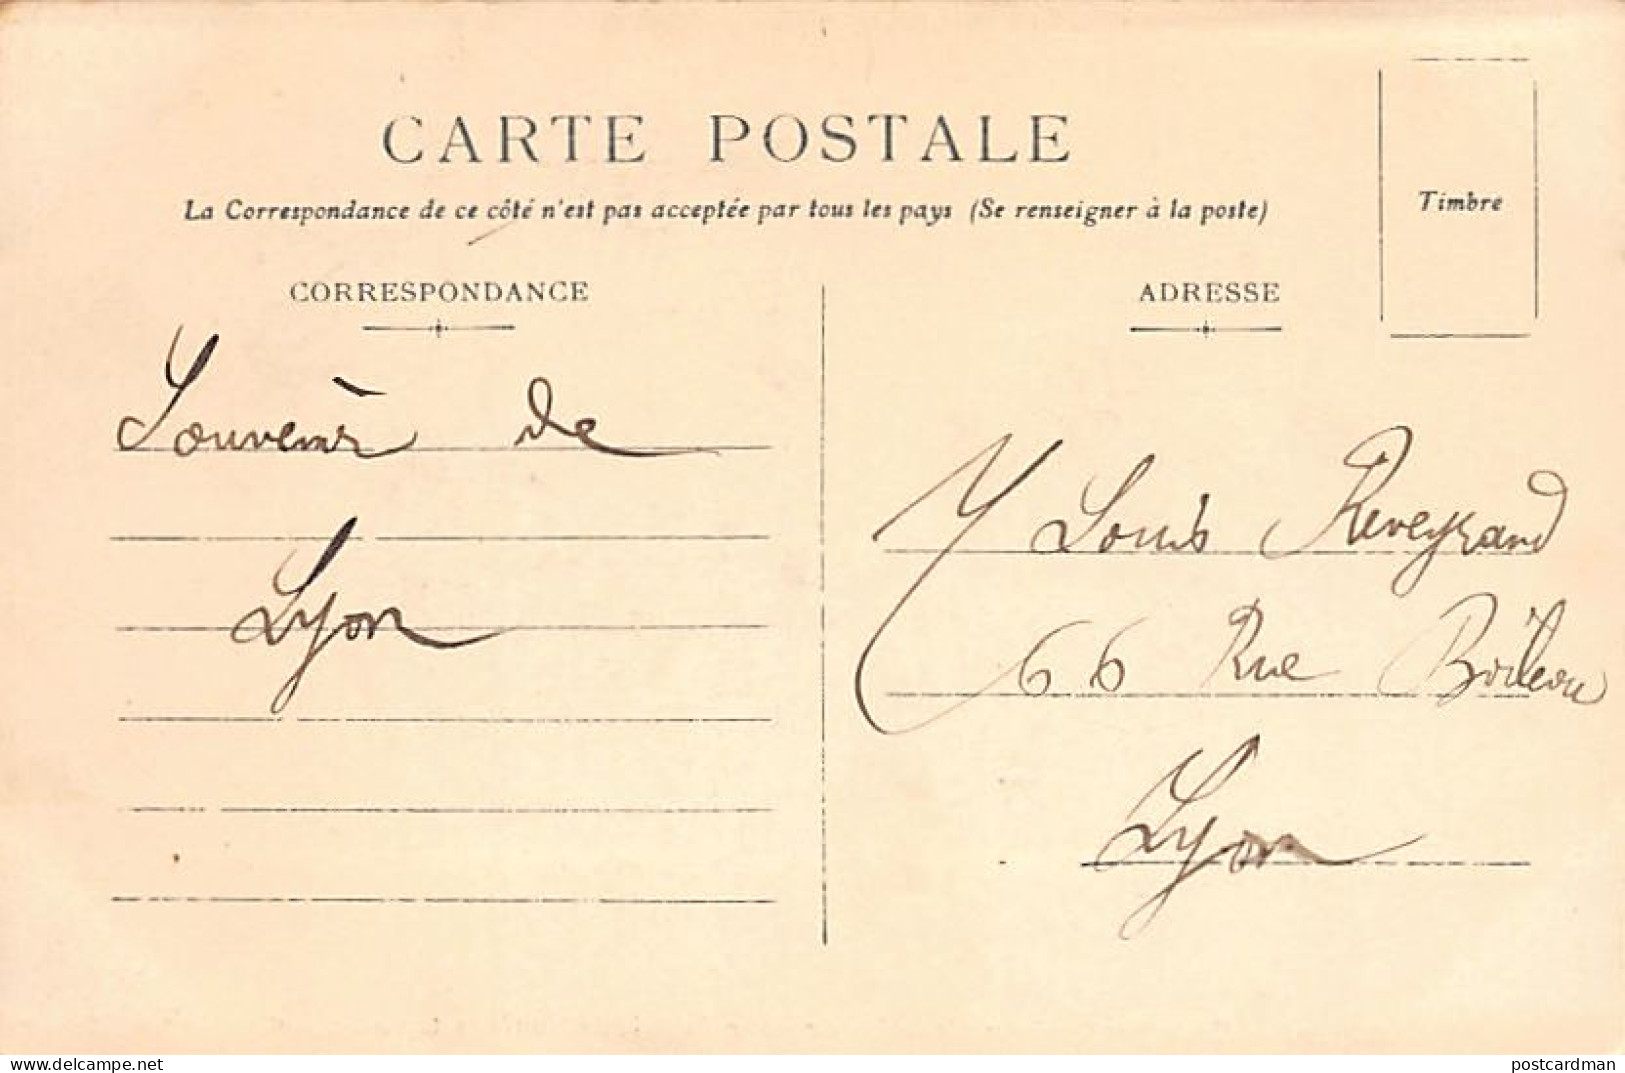 CARTE POSTALE
La Correspondance de ce côté n'est pas acceptée par tous les pays (Se renseigner à la poste)
Timbre
CORRESPONDANCE
ADRESSE
Souvenir de
Lyon
M Louis Reveyrand
66 Rue Boileau
Lyon
www.delcampe.net
postcardman